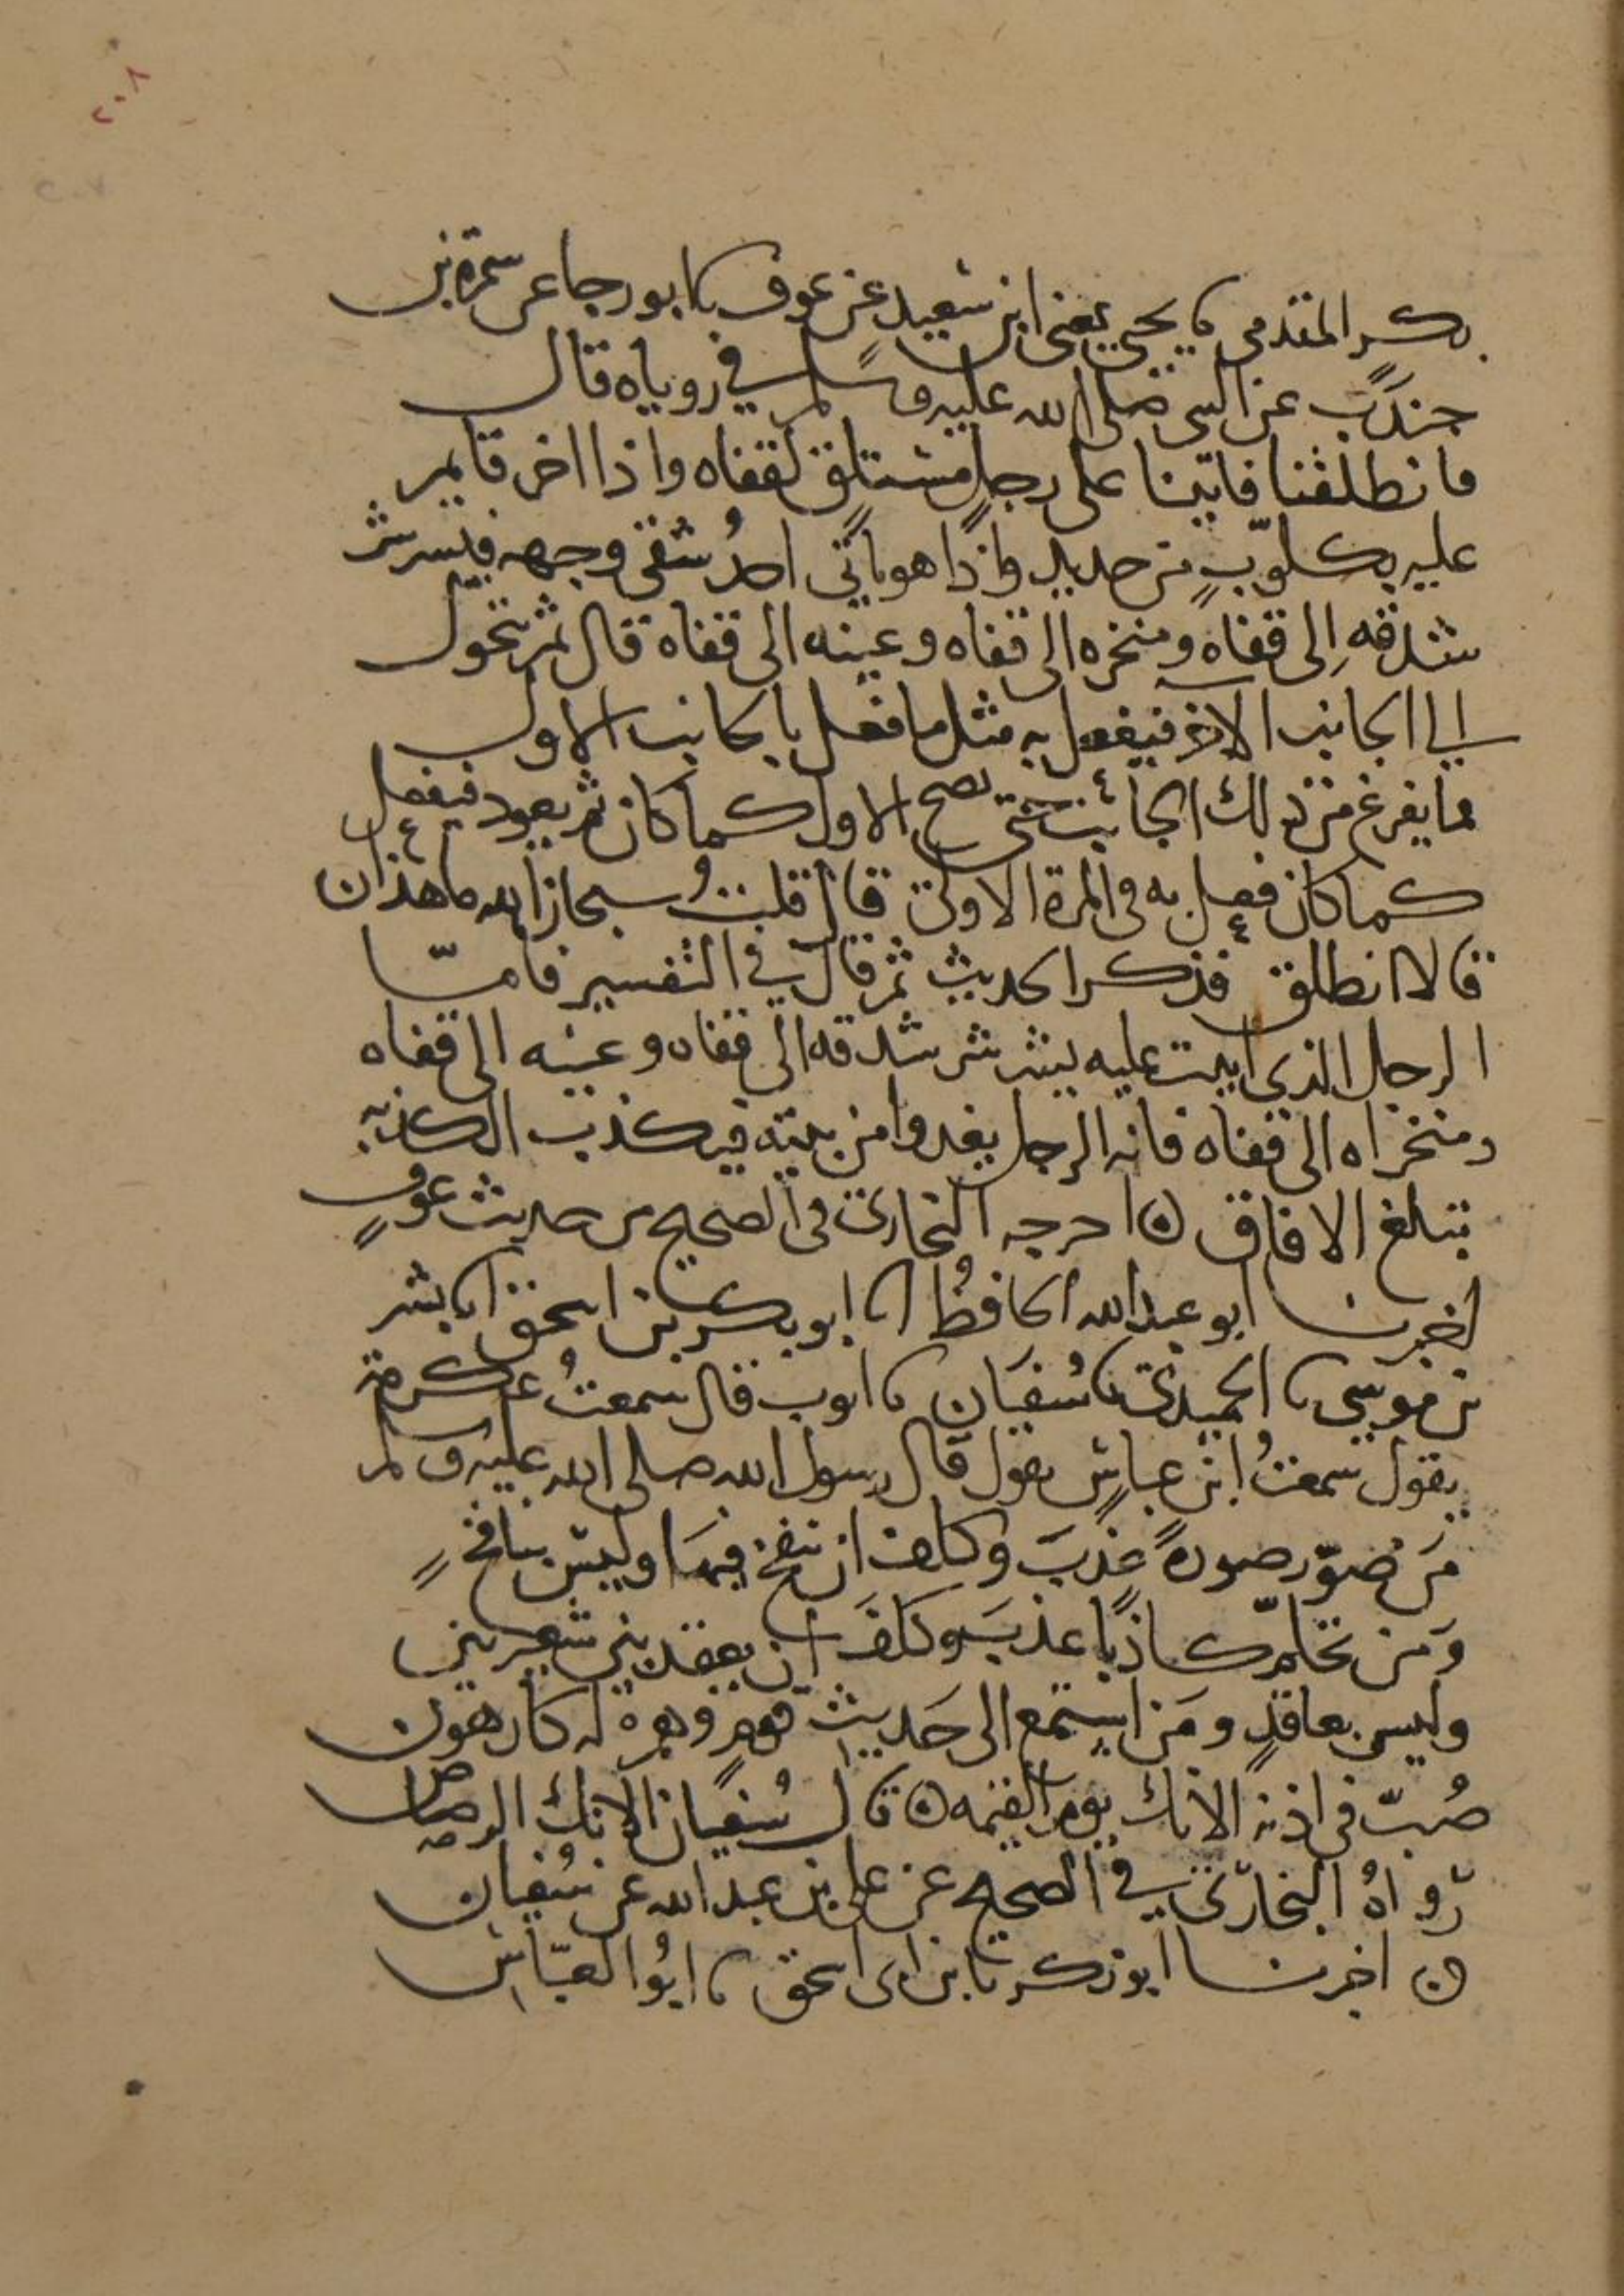 ٢٠٨
بكر المقدمي نا يحيى يعني ابن سعيد عن عوف نا ابو رجا عن سمرة بن
جندب عن النبي صلى الله عليه وسلم في روياه قال
فانطلقنا فاتينا على رجل مستلق لقفاه واذا اخر قايم
عليه بكلوب من حديد واذا هو ياتي احد شقي وجهه فيشرشر
شدقه الى قفاه ومنخره الى قفاه وعينه الى قفاه قال ثم يتحول
الى الجانب الاخر فيفعل به مثل ما فعل بالجانب الاول
فما يفرغ من ذلك الجانب حتى يصح الاول كما كان ثم يعود فيفعل
كما كان فعل به في المرة الاولى قال قلت سبحان الله ما هذان
قالا انطلق فذكر الحديث ثم قال في التفسير فاما
الرجل الذي اتيت عليه يشرشر شدقه الى قفاه وعينه الى قفاه
ومنخراه الى قفاه فانه الرجل يغدوا من بيته فيكذب الكذبة
تبلغ الافاق ۞ اخرجه البخاري في الصحيح من حديث عوف
اخبرنا ابو عبد الله الحافظ انا ابو بكر بن اسحق انا بشر
بن موسى نا الحميدي نا سفيان نا ايوب قال سمعت عكرمة
يقول سمعت ابن عباس يقول قال رسول الله صلى الله عليه وسلم
من صور صورة عذب وكلف ان ينفخ فيها وليس بنافخ
ومن تحلم كاذبا عذب وكلف ان يعقد بين شعيرتين
وليس بعاقد ومن استمع الى حديث قوم وهم له كارهون
صب في اذنه الانك يوم القيمه ۞ قال سفيان الانك الرصاص
رواه البخاري في الصحيح عن علي بن عبد الله عن سفيان
۞ اخبرنا ابو زكريا بن ابي اسحق نا ابو العباس